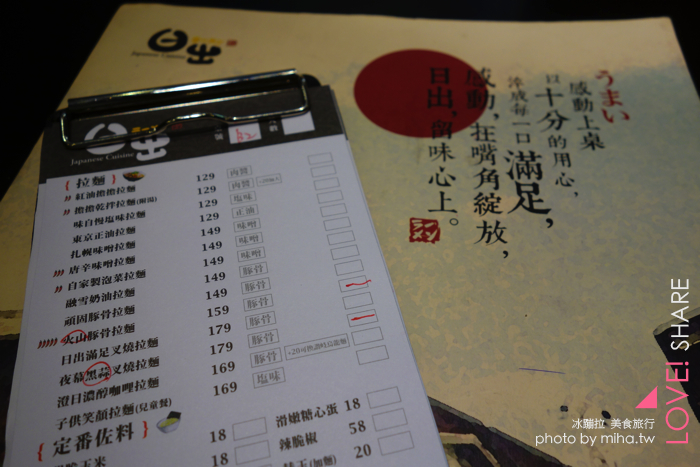 日出
Japanese Cuisine
うまい
感動上桌
以十分的用心,
淬成每一口滿足,
感動,在嘴角綻放,
日出,留味心上。
日出
Japanese Cuisine
{ 拉麵 }
紅油擔擔拉麵 129 肉醬
擔擔乾拌拉麵(附湯) 129 肉醬
味自慢塩味拉麵 129 塩味
東京正油拉麵 129 正油
扎幌味噌拉麵 149 味噌
唐辛味噌拉麵 149 味噌
自家製泡菜拉麵 149 味噌
融雪奶油拉麵 149 豚骨
頑固豚骨拉麵 149 豚骨
火山豚骨拉麵 159 豚骨
日出滿足叉燒拉麵 179 豚骨
夜幕黑蒜叉燒拉麵 179 豚骨
澄日濃醇咖哩拉麵 169 豚骨
子供笑顏拉麵(兒童餐) 169 塩味
{ 定番佐料 }
玉米 18
18
滑嫩糖心蛋 18
辣脆椒 58
(加麵) 20
LOVE! SHARE
冰蹦拉 美食旅行
photo by miha.tw